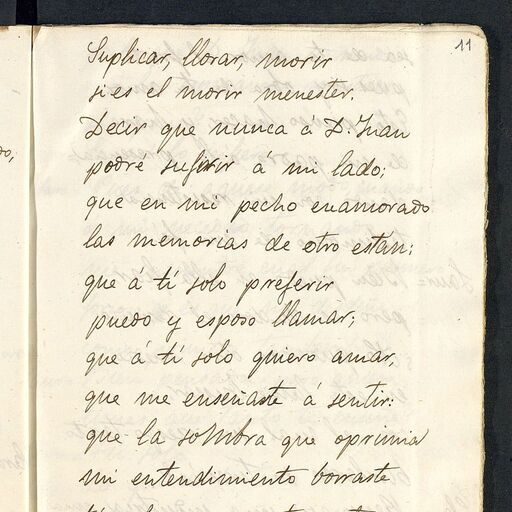 11
Suplicar, llorar, morir
si es el morir menester.
Decir que nunca á D. Juan
podré sufrir á mi lado;
que en mi pecho enamorado
las memorias de otro estan;
que á tí solo preferir
puedo y esposo llamar;
que á tí solo quiero amar,
que me enseñaste á sentir:
que la sombra que oprimia
mi entendimiento borraste